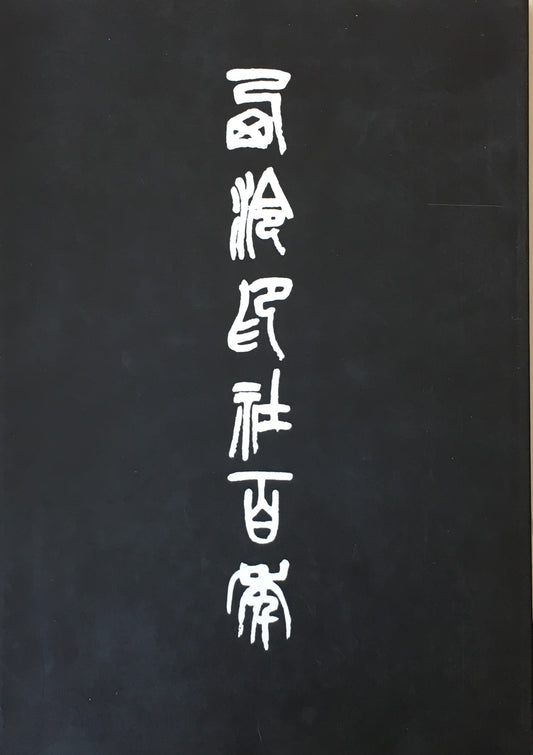 西泠印社百年